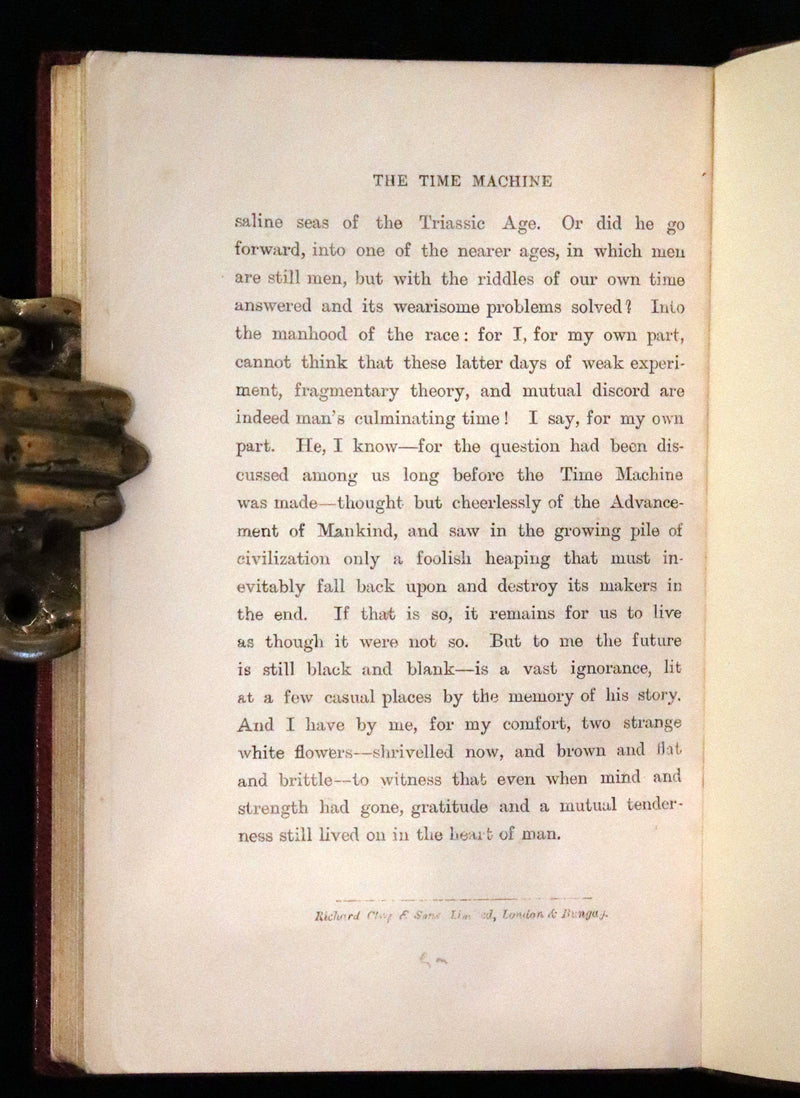 THE TIME MACHINE
saline seas of the Triassic Age. Or did he go
forward, into one of the nearer ages, in which men
are still men, but with the riddles of our own time
answered and its wearisome problems solved? Into
the manhood of the race: for I, for my own part,
cannot think that these latter days of weak experi-
ment, fragmentary theory, and mutual discord are
indeed man's culminating time! I say, for my own
part. He, I know—for the question had been dis-
cussed among us long before the Time Machine
was made—thought but cheerlessly of the Advance-
ment of Mankind, and saw in the growing pile of
civilization only a foolish heaping that must in-
evitably fall back upon and destroy its makers in
the end. If that is so, it remains for us to live
as though it were not so. But to me the future
is still black and blank—is a vast ignorance, lit
at a few casual places by the memory of his story.
And I have by me, for my comfort, two strange
white flowers—shrivelled now, and brown and flat
and brittle—to witness that even when mind and
strength had gone, gratitude and a mutual tender-
ness still lived on in the heart of man.
Richard Clay & Sons Limited, London & Bungay.